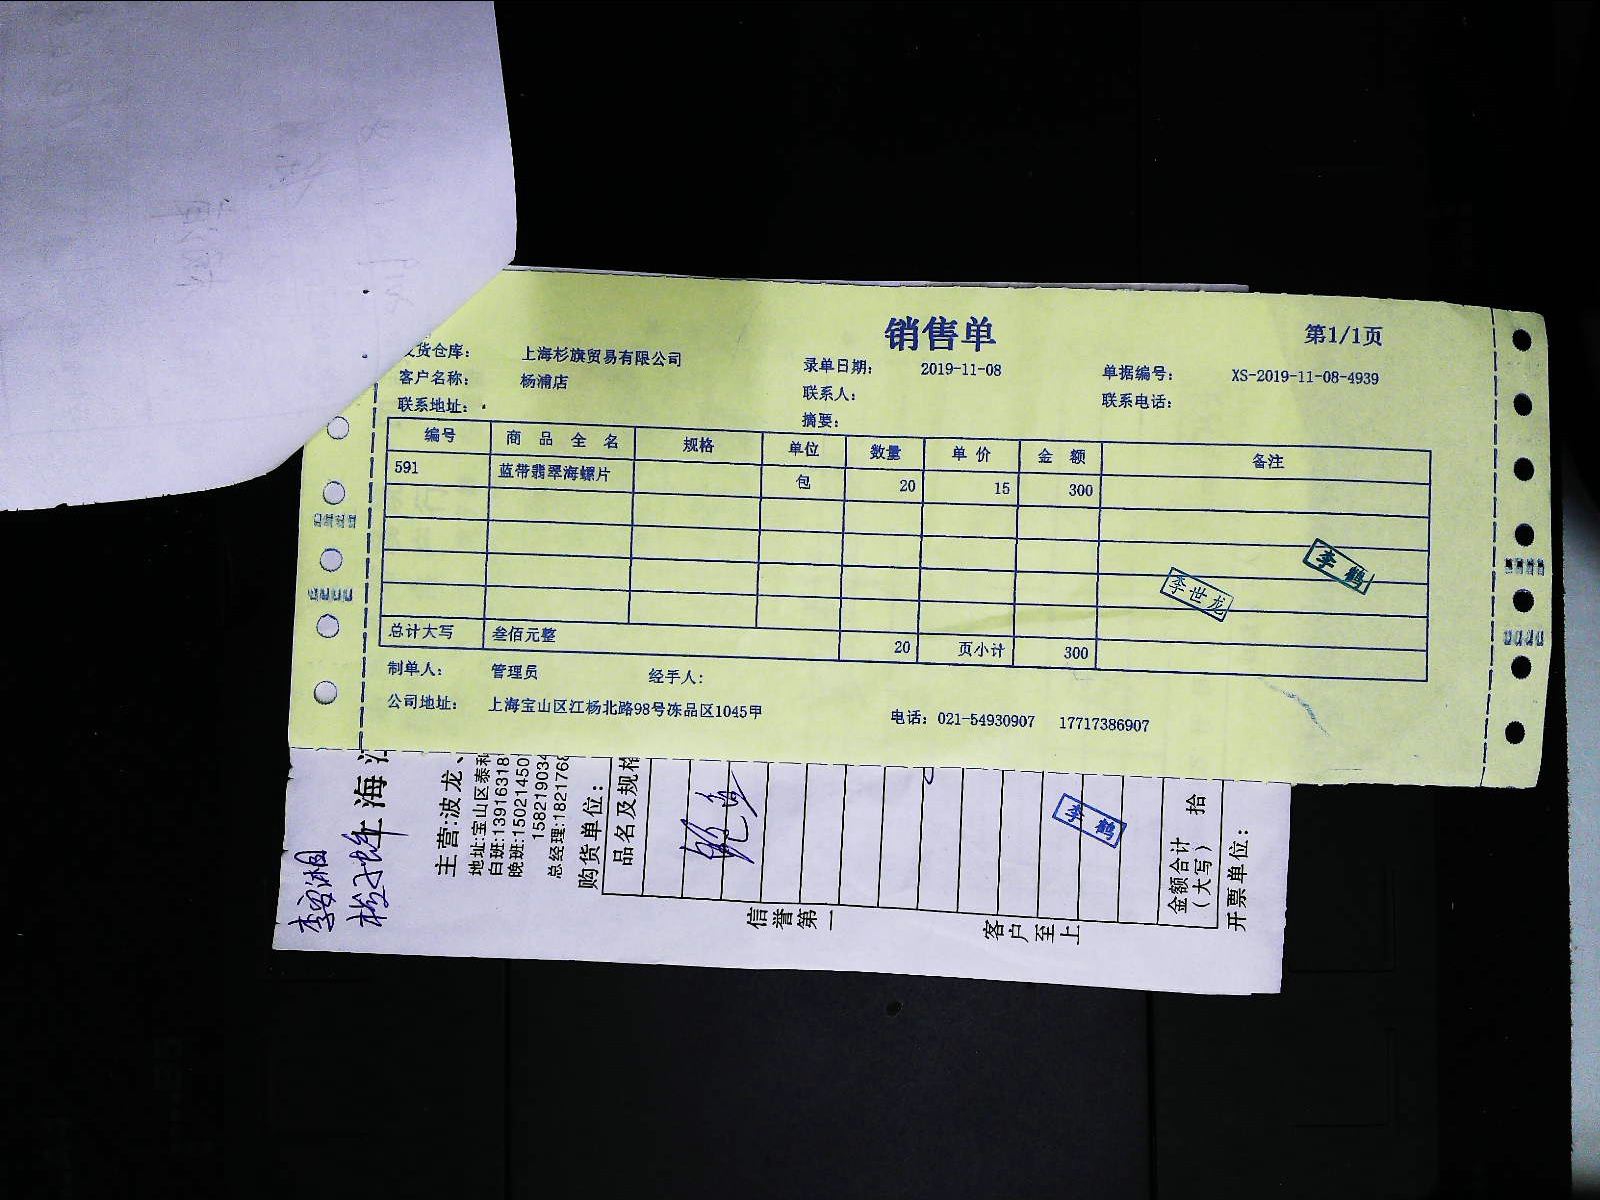 销售单
第1/1页
发货仓库: 上海杉旗贸易有限公司 录单日期: 2019-11-08 单据编号: XS-2019-11-08-4939
客户名称: 杨浦店 联系人: 联系电话:
联系地址: 摘要:
编号 商品全名 规格 单位 数量 单价 金额 备注
591 蓝带翡翠海螺片 包 20 15 300
李鹤
李世龙
总计大写 叁佰元整 20 页小计 300
制单人: 管理员 经手人:
公司地址: 上海宝山区江杨北路98号冻品区1045甲 电话: 021-54930907 17717386907
上海
主营:波龙、
地址:宝山区泰和
白班:13916318
晚班:15021450
15821903
总经理:1821768
购货单位:
品名及规格
李鹤
金额合计(大写) 拾
开票单位:
信誉第一
客户至上